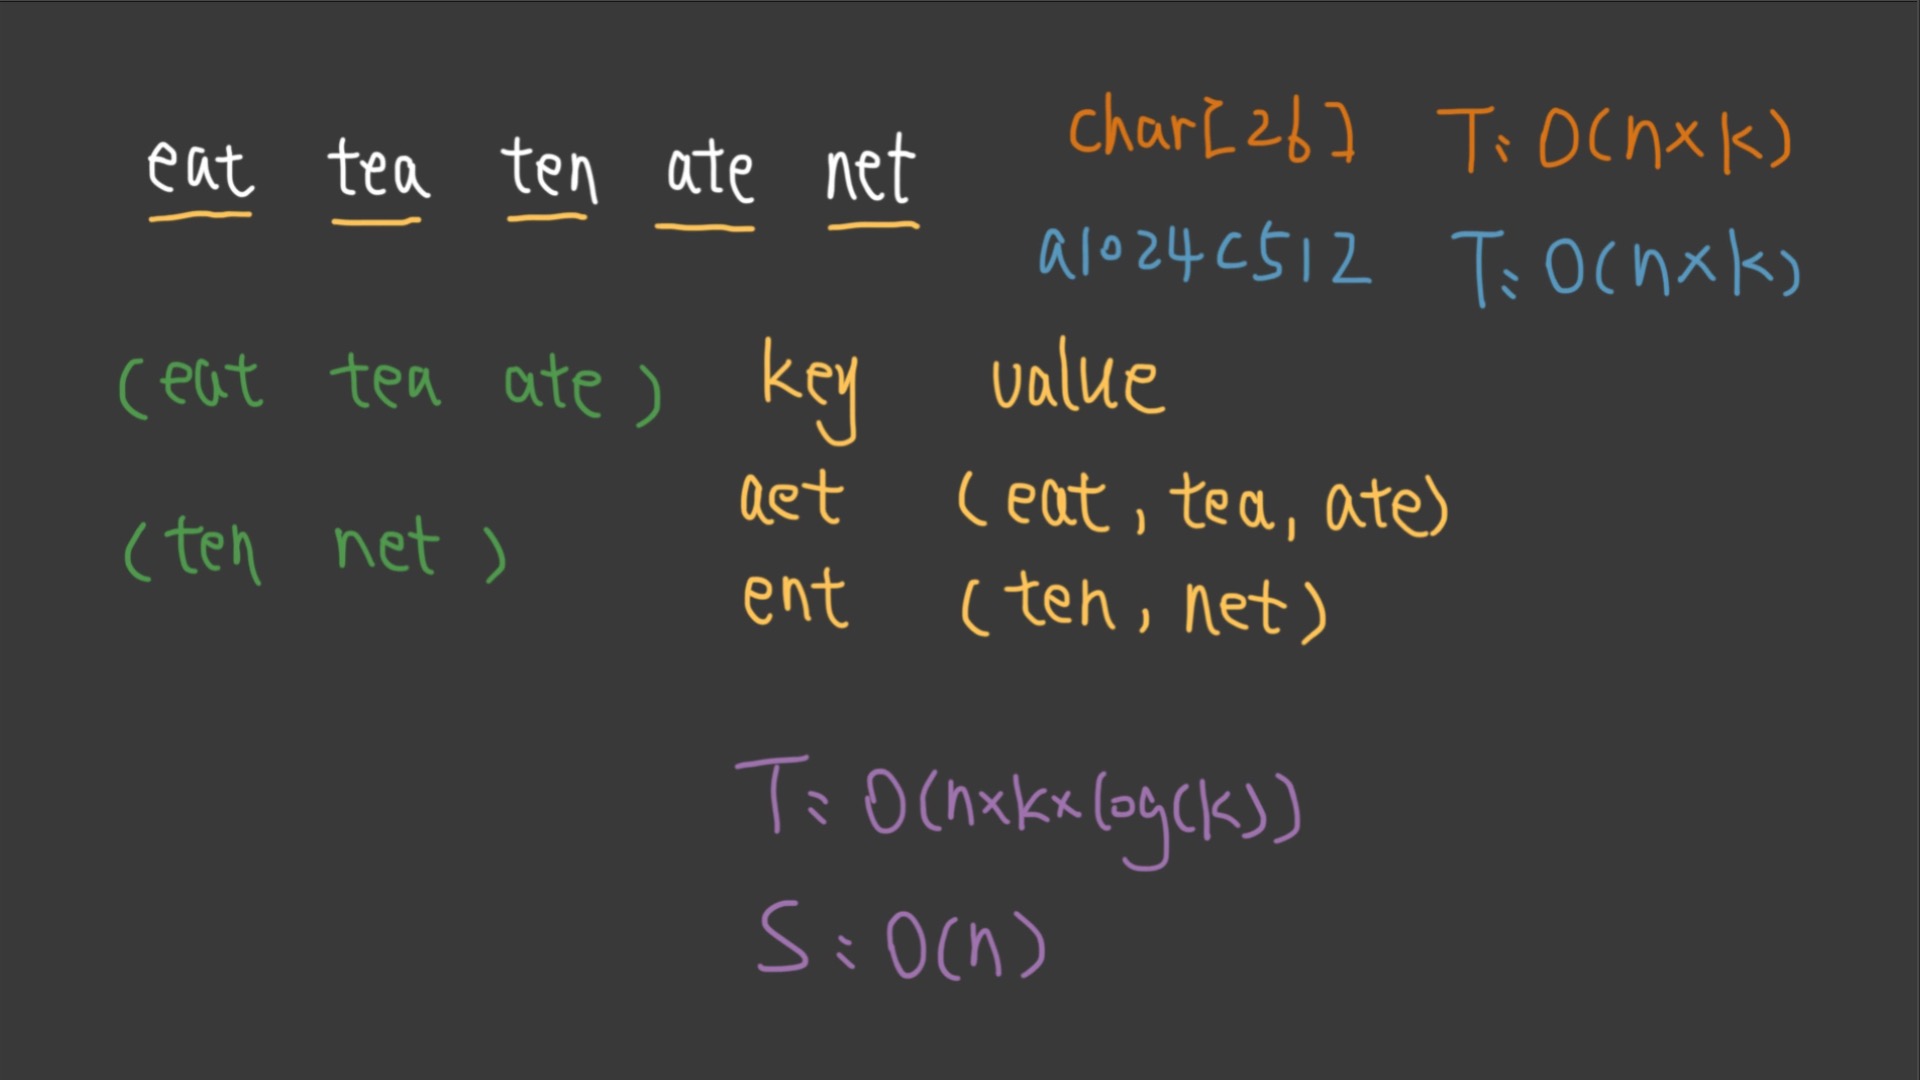 eat tea ten ate net
char[26] T: O(n×k)
a1024c512 T: O(n×k)
(eat tea ate)
(ten net)
key value
aet (eat, tea, ate)
ent (ten, net)
T: O(n×k×log(k))
S: O(n)